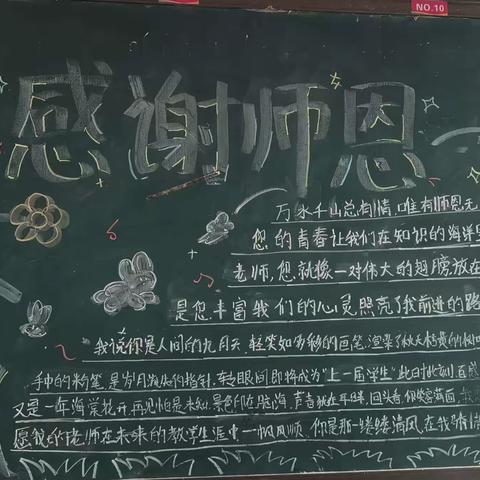 NO.10
感谢师恩
万水千山总有情,唯有师恩无
您的青春让我们在知识的海洋里
老师,您就像一对伟大的翅膀放在
是您丰富我们的心灵照亮了我前进的路
我说你是人间的九月天,轻笑如多彩的画笔,渲染了秋天枯黄的
手中的粉笔,是岁月 的指针,转眼间,即将成为“上一届学生”此时此刻,
又是一年海棠花开,再见怕是未知,景色印在脑海,声音 在耳畔,回头看,
愿我的老师在未来的教学生涯中一帆风顺,你是那一缕缕清风,在我